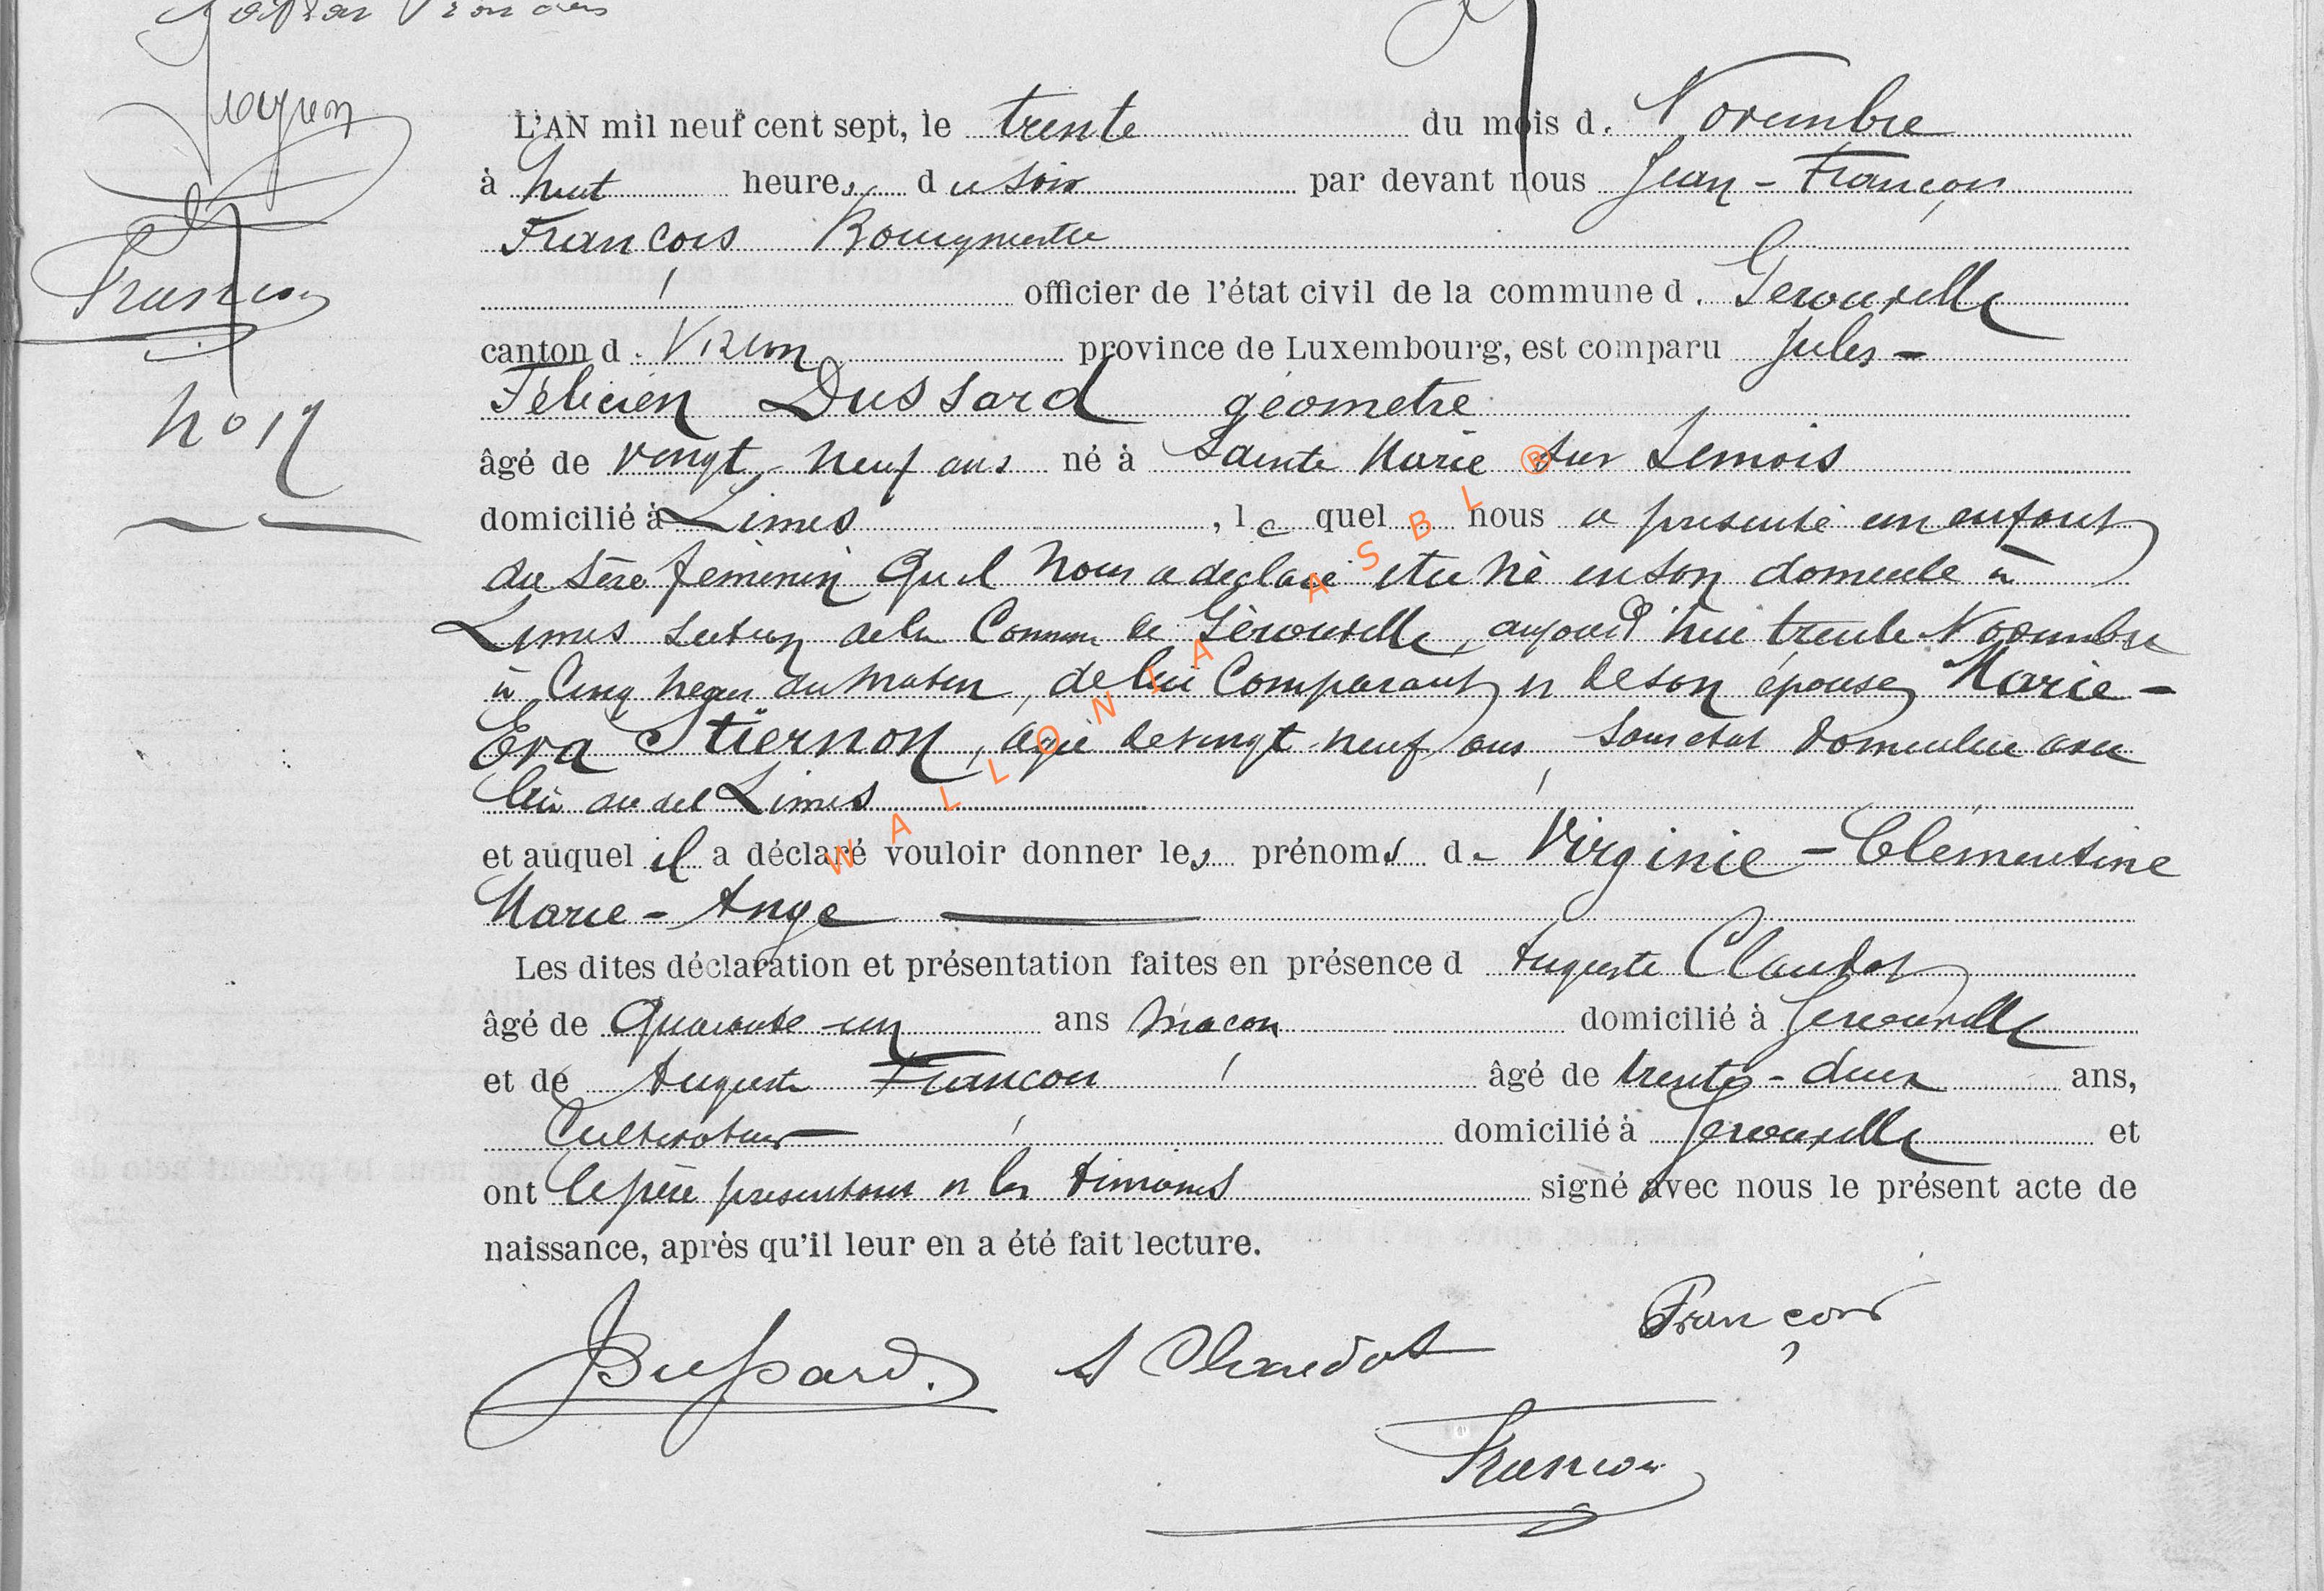 L'AN mil neuf cent sept, le trente du mois d. Novembre
à huit heures du soir par devant nous Jean - François
François Bourgmestre
François officier de l'état civil de la commune d. Gérouville
canton d. Virton province de Luxembourg, est comparu Jules -
Félicien Dussard géomètre
No 17
âgé de vingt-neuf ans né à Sainte Marie sur Semois
domicilié à Limes, le quel nous a présenté un enfant
du sexe féminin qu'il nous a déclaré être né en son domicile à
Limes section de la Commune de Gérouville, aujourd'hui trente Novembre
à Cinq heures du matin, de lui Comparant et de son épouse Marie -
Eva Stiernon, agée de vingt-neuf ans, sans état domiciliée avec
lui au dit Limes
et auquel il a déclaré vouloir donner les prénoms d. Virginie - Clémentine
Marie - Ange
Les dites déclaration et présentation faites en présence d Auguste Claudot
âgé de Quarante-un ans maçon domicilié à Gérouville
et de Auguste François âgé de trente-deux ans,
Cultivateur domicilié à Gérouville et
ont le père présentant et les témoins signé avec nous le présent acte de
naissance, après qu'il leur en a été fait lecture.
JDussard. A Claudot François
François
WALLONIA ASBL ®